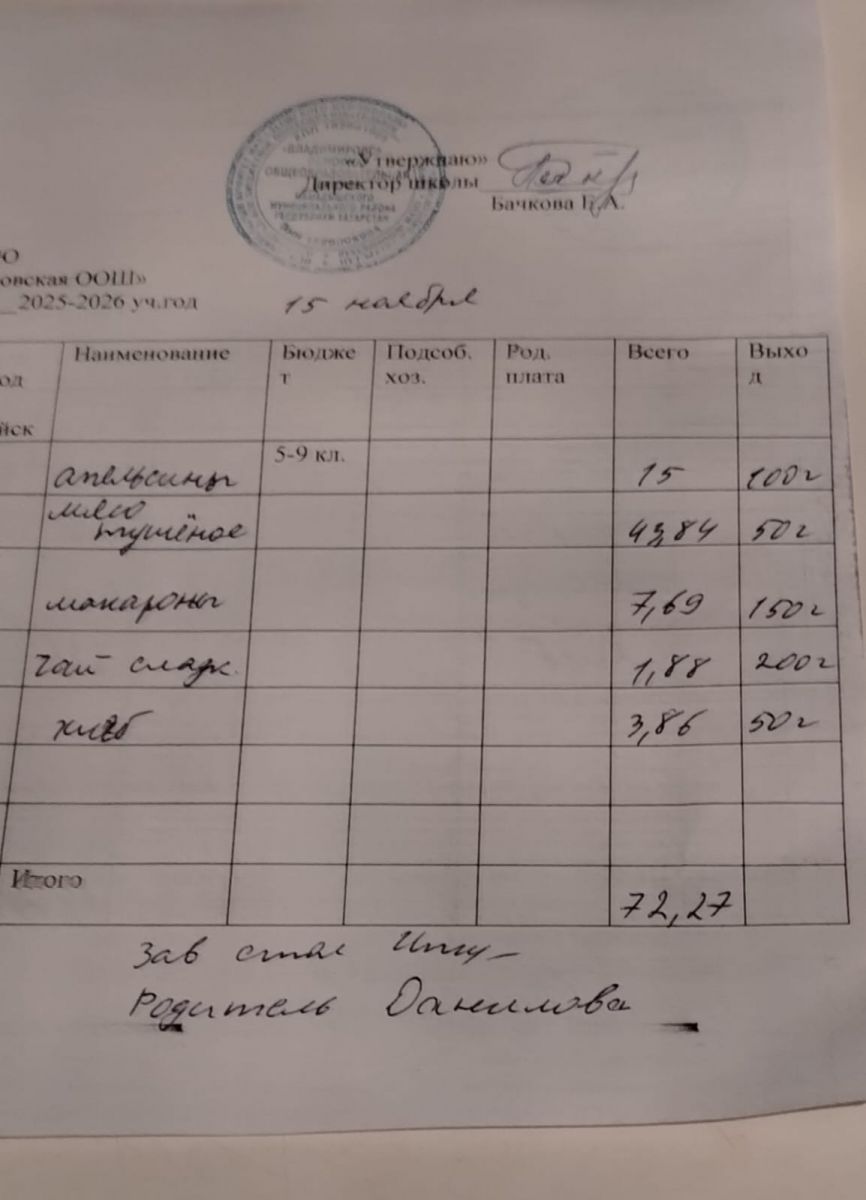 «Утверждаю»
Директор школы
Бачкова Е.А.
О
овская ООШ»
__2025-2026 уч.год 15 ноября
од Наименование Бюджет Подсоб. хоз. Род. плата Всего Выход
йск
5-9 кл.
апельсины 15 100г
мясо
тушёное 43,84 50г
макароны 7,69 150г
чай сладк. 1,88 200г
хлеб 3,86 50г
Итого 72,27
Зав стол
Родитель Данилова